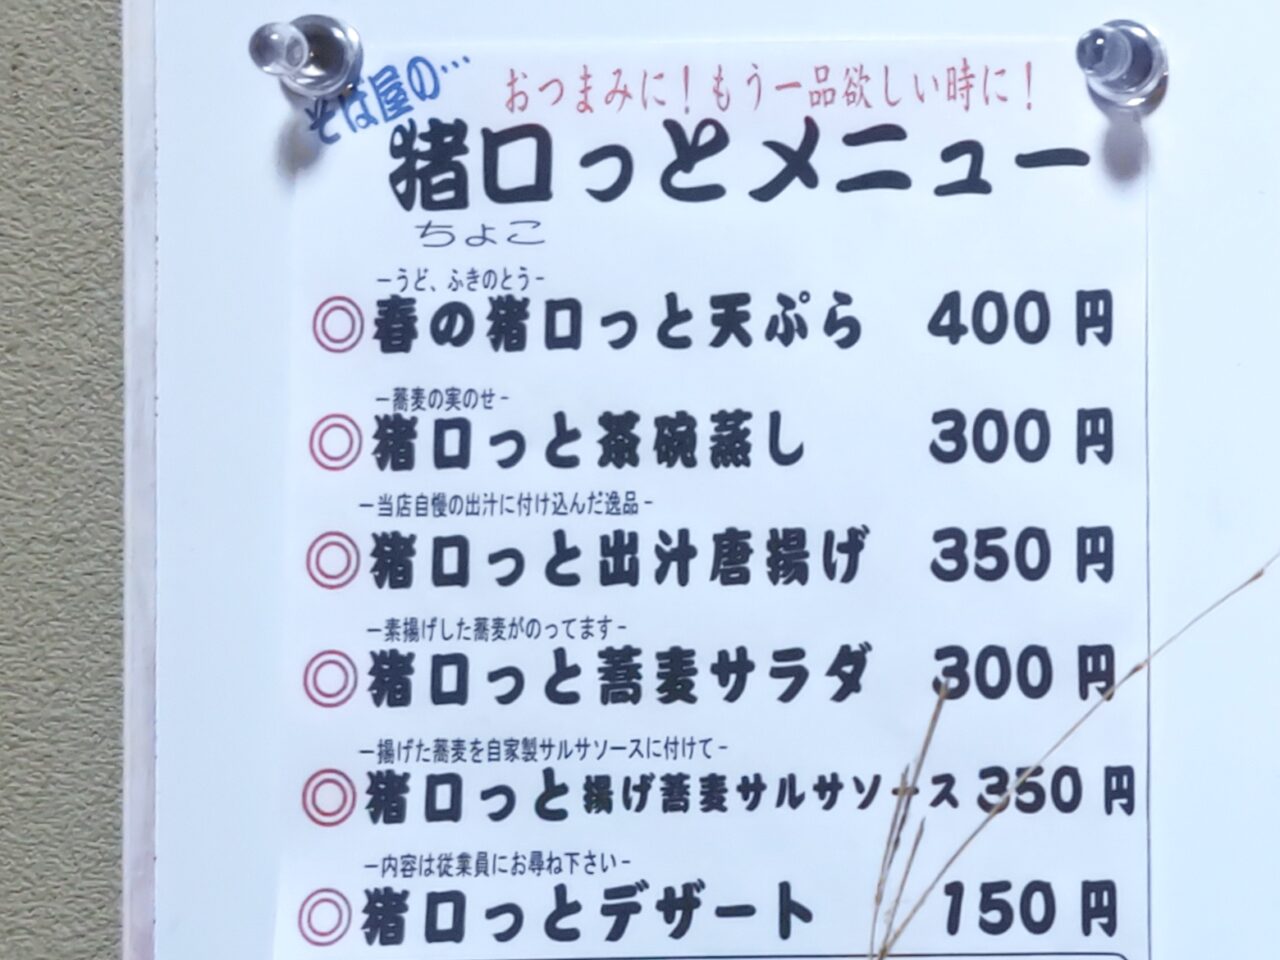 そば屋の…
おつまみに！もう一品欲しい時に！
猪口っとメニュー
ちょこ
－うど、ふきのとう－
◎春の猪口っと天ぷら 400円
－蕎麦の実のせ－
◎猪口っと茶碗蒸し 300円
－当店自慢の出汁に付け込んだ逸品－
◎猪口っと出汁唐揚げ 350円
－素揚げした蕎麦がのってます－
◎猪口っと蕎麦サラダ 300円
－揚げた蕎麦を自家製サルサソースに付けて－
◎猪口っと揚げ蕎麦サルサソース 350円
－内容は従業員にお尋ね下さい－
◎猪口っとデザート 150円